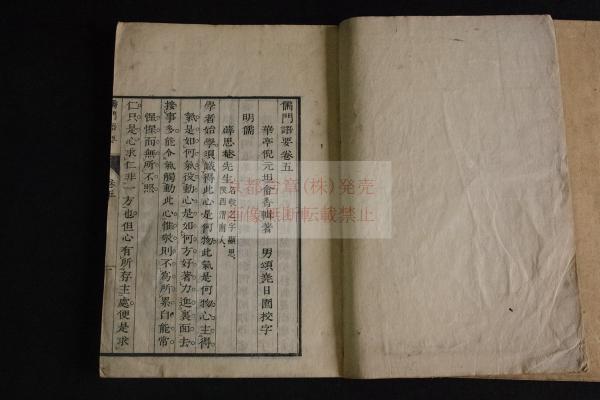 儒門語要卷五
華亭倪元坦畬香輯著 男頌堯日園挍字
明儒
薛思菴先生 名敬之字顯思陝西渭南人
學者始學須識得此心是何物此氣是何物心主得
氣是如何氣役動心是如何方好著力進裏面去
接事多能令氣觸動此心惟敬則不爲所累自能常
惺惺而無所不照
仁只是心求仁非一方也但心有所存主處便是求
儒門語要 卷五 一
京都文章(株)発売
画像無断転載禁止